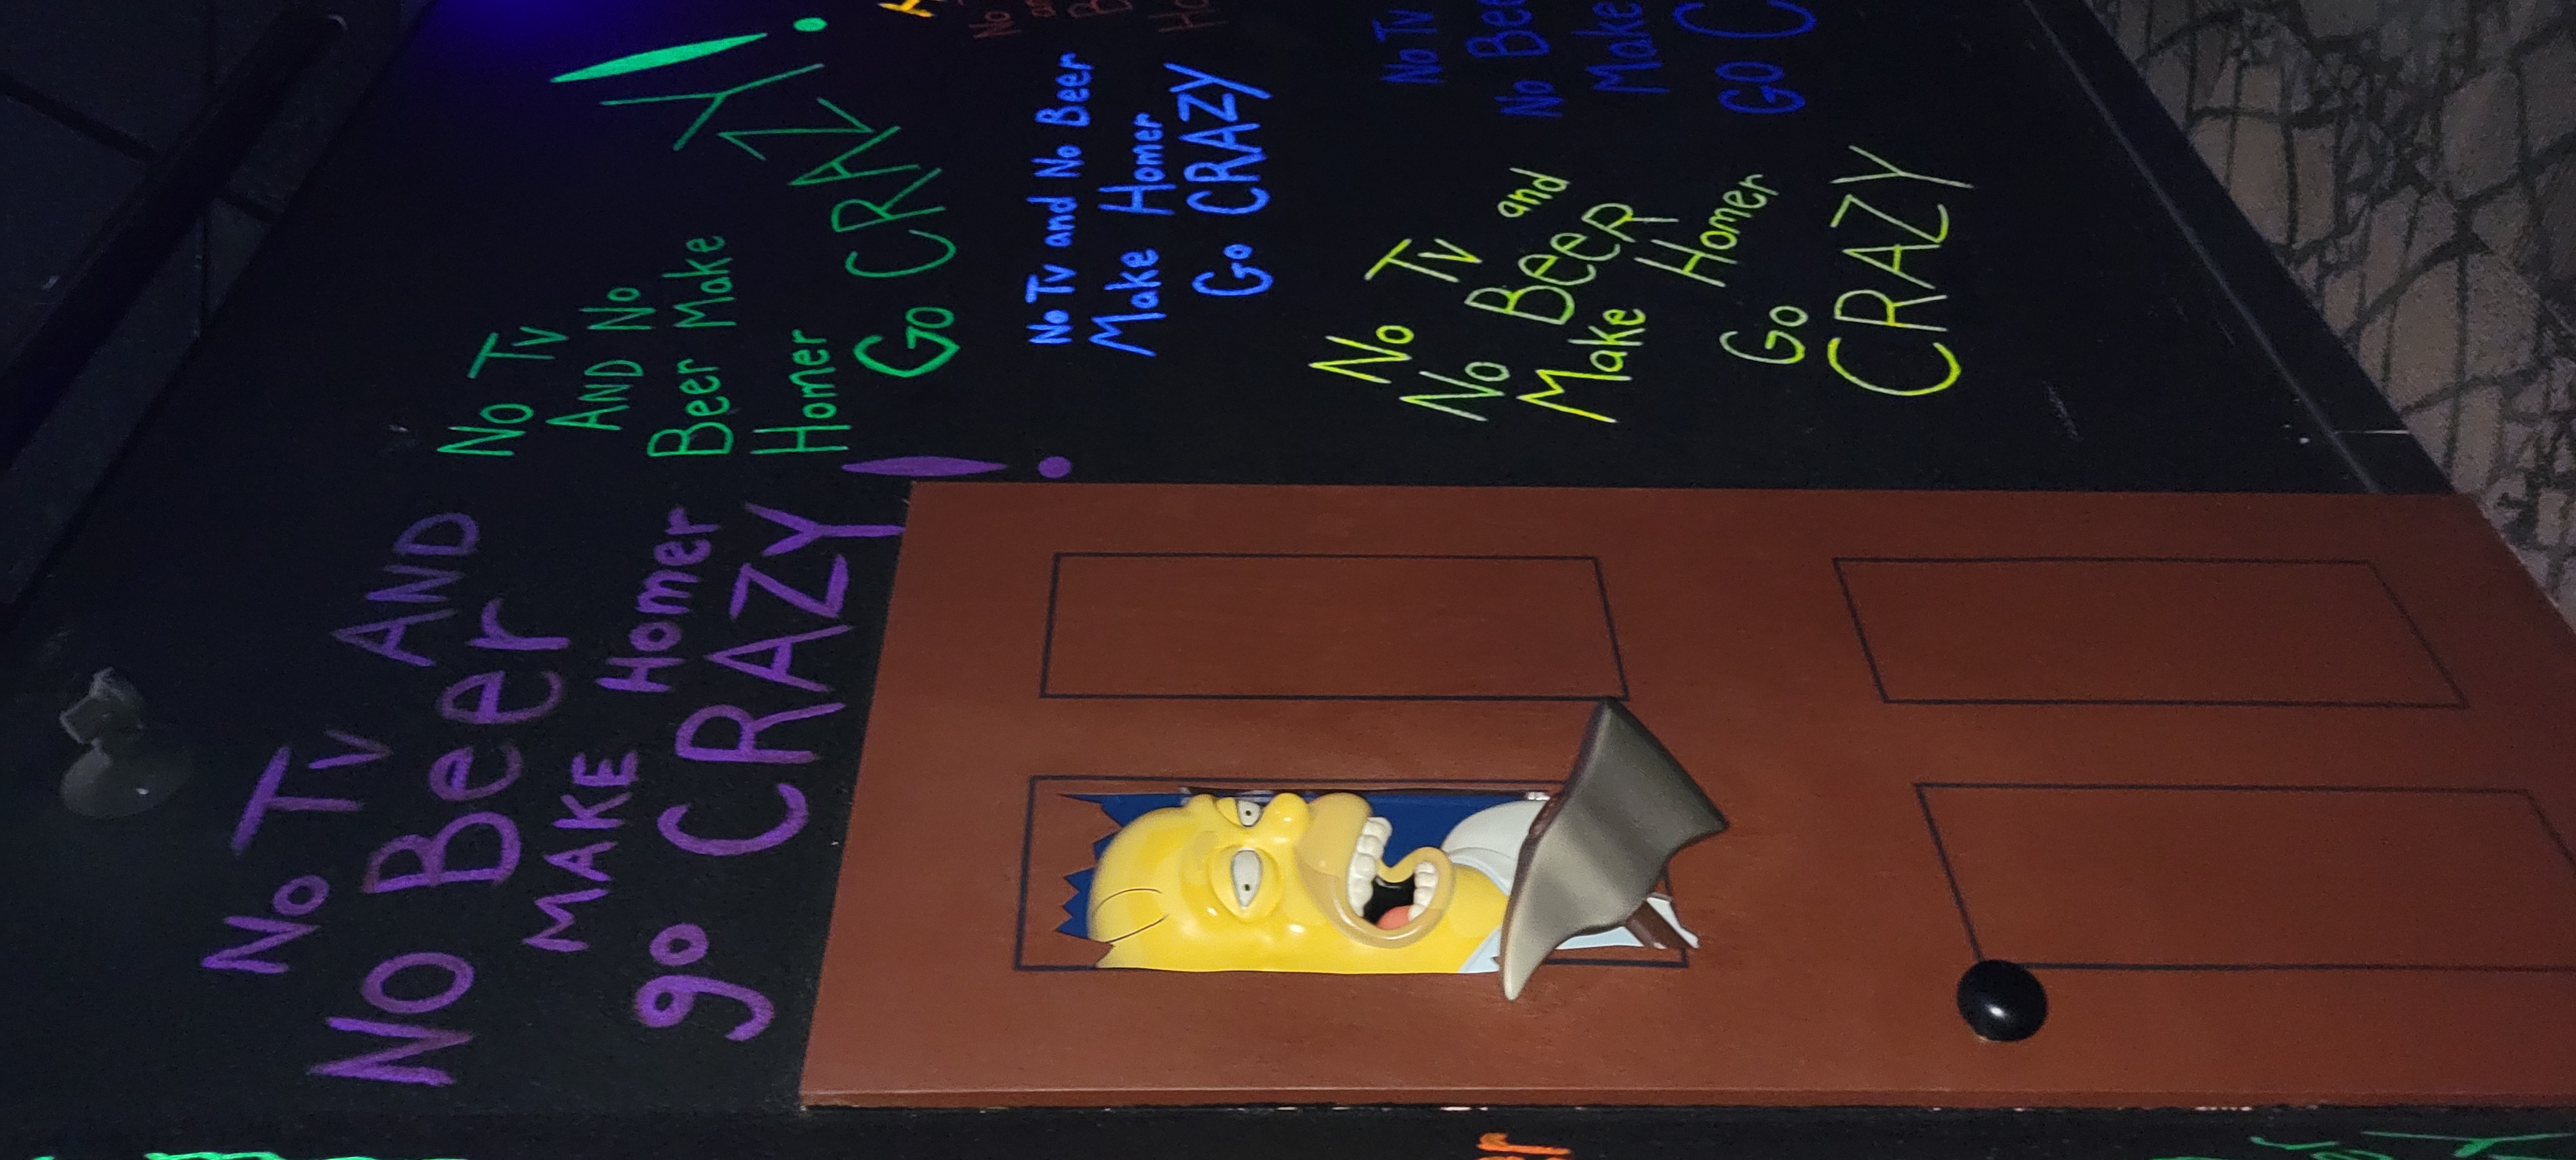 No Tv AND
No Beer
MAKE Homer
go CRAZY!
No Tv
AND No
Beer Make
Homer
Go CRAZY!
No Tv and No Beer
Make Homer
Go CRAZY
No Tv and
No BeeR
Make Homer
Go
CRAZY
No Tv
No Bee
Make
GO C
No